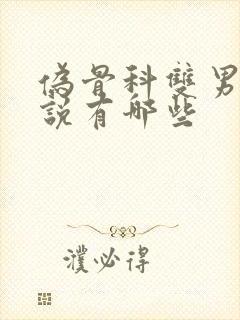 偽骨科雙男
說有哪些
濮必得